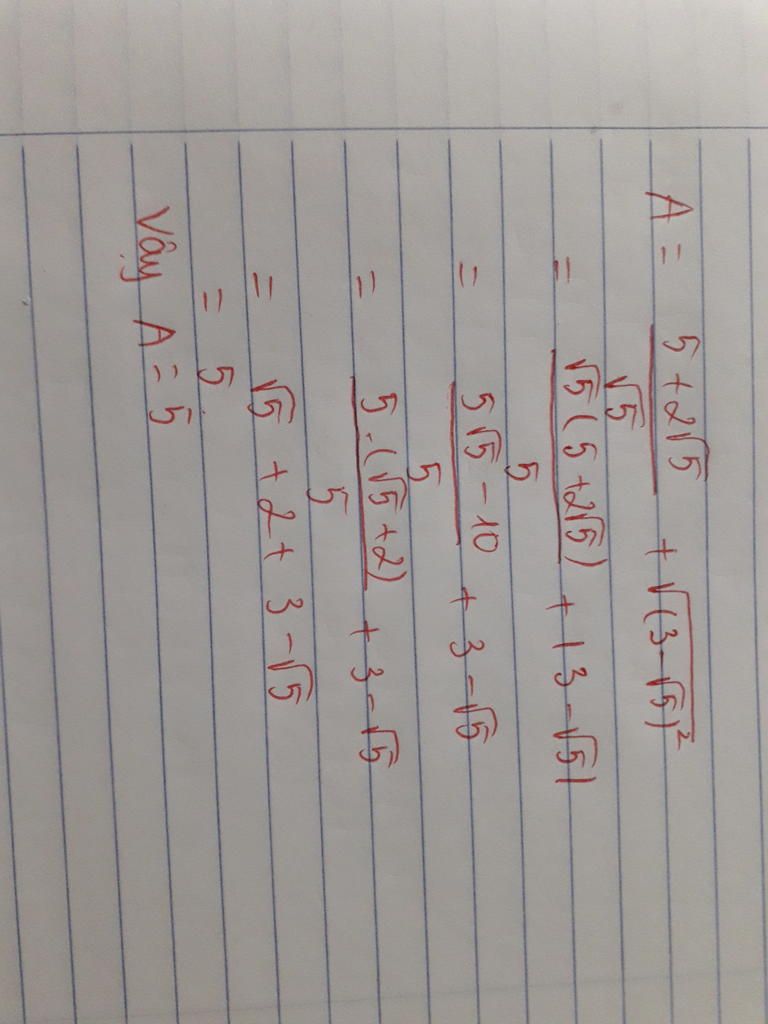 A = (5 + 2√5)/√5 + √((3 - √5)²)
= √5(5 + 2√5)/5 + |3 - √5|
= (5√5 - 10)/5 + 3 - √5
= 5.(√5 + 2)/5 + 3 - √5
= √5 + 2 + 3 - √5
= 5.
Vậy A = 5